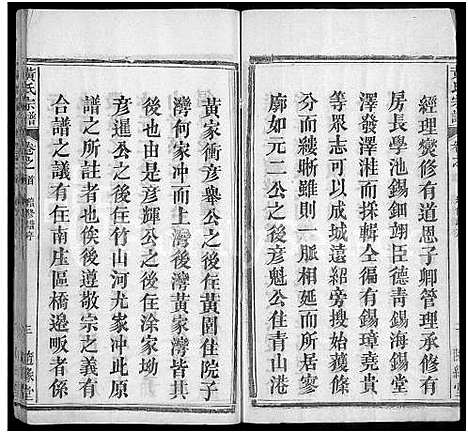 經理燮修有道思子卿管理承修有
房長學池錫鈿翊臣德青錫海錫堂
澤發澤湘而採輯全徧有錫璋堯貴
等眾志可以成城遠紹旁搜始獲條
分而縷晰雖則一脈相延而所居寥
廓如元二公之後彥魁公住青山港
黃氏宗譜
卷之首
黃家衝彥舉公之後住黃圍住院子
灣何家冲而上灣後灣黃家灣皆其
後也由是彥輝公之後住涂家坳
彥暹公之後住竹山河尤家冲此原
譜之所註者也俟後遵敬宗之義而
合譜之議有住南庄區橋邉畈者係